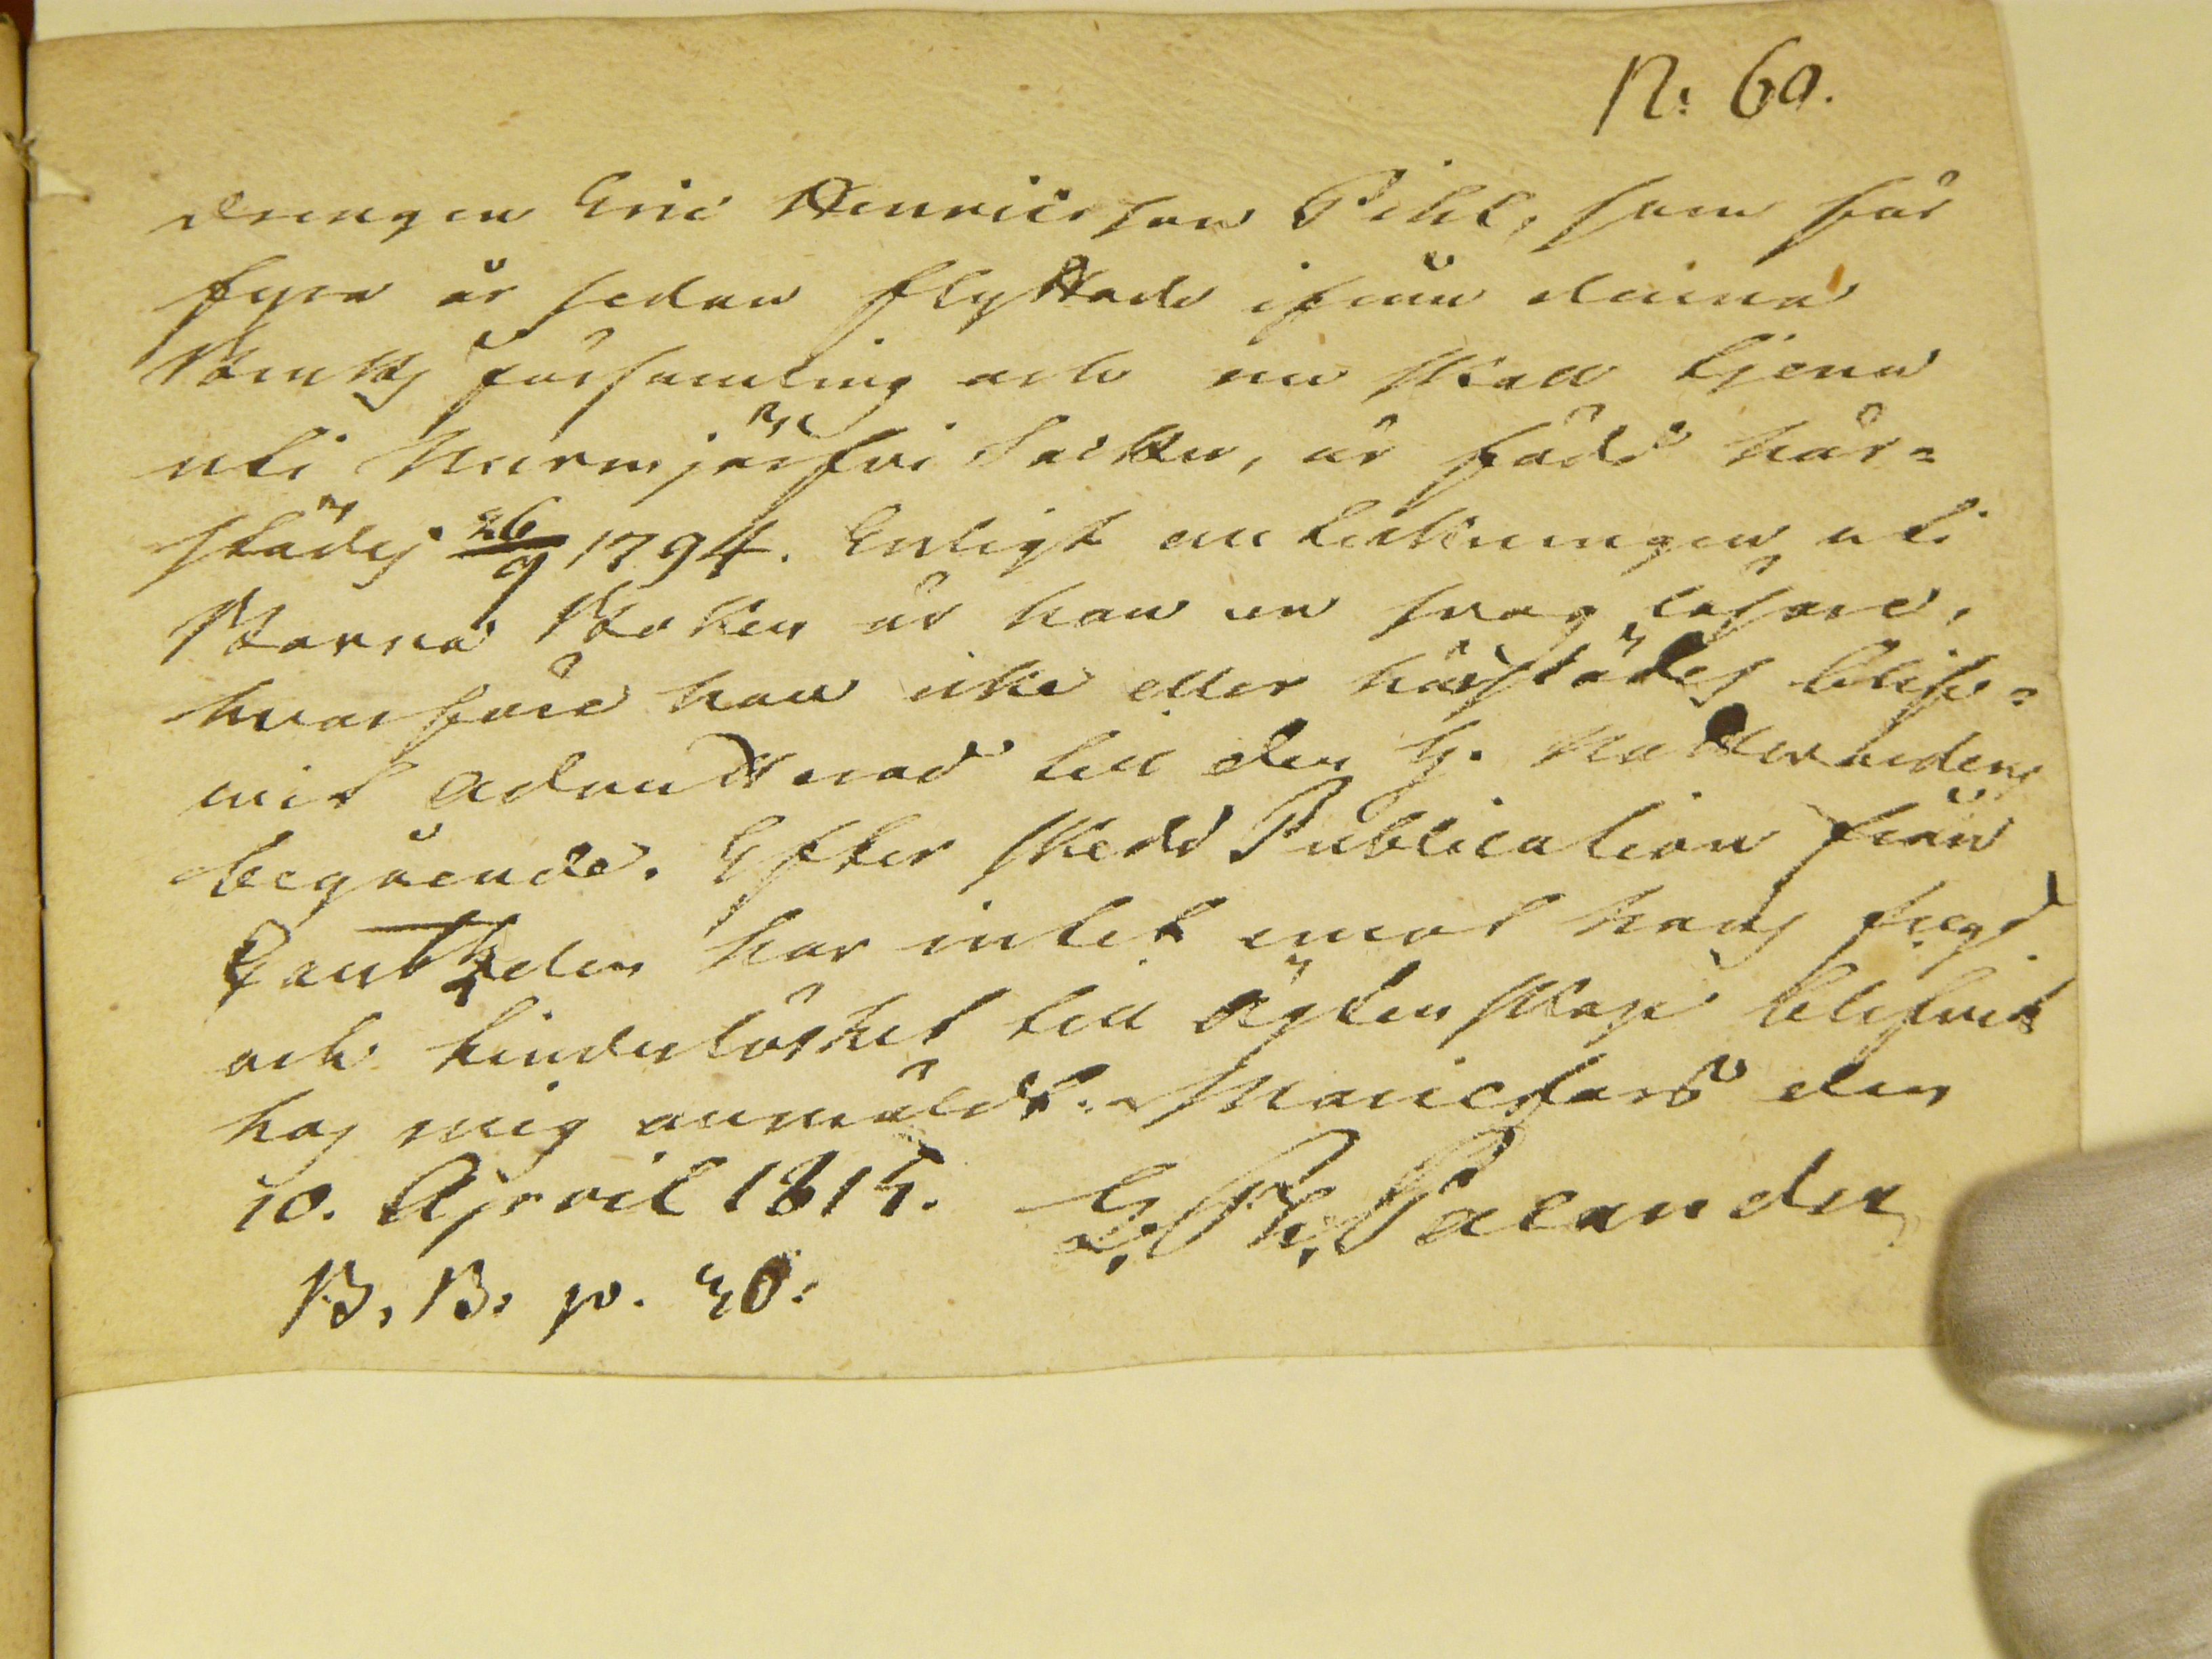 N: 60.
Drengen Eric Henricsson Pihl, som för
fyra år sedan flyttade ifrån denna
Bruks församling och nu skall tjena
uti Nurmijärfvi Socken, är född här=
städes 26/9 1794. Enligt anteckningen uti
Barna Boken är han en svag läsare,
hvarföre han icke eller härstädes blif=
vit admitterad till den H. Nattvarden
begående. Efter skedd Publication från
den har intet emot hans frägd
och hinderlöshet till Ägtenskap blifvit
hos mig anmäldt. Mariefors den
10. April 1815. G. Ph. Palander
B. B. p. 30.